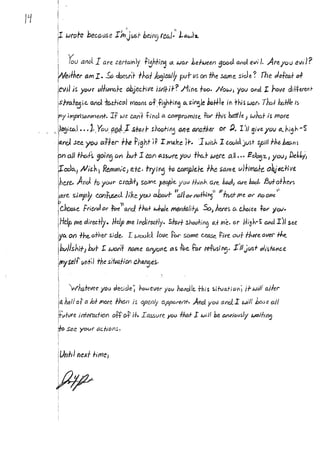 I wrote because I'm just being real. Lawls
You and I are certainly fighting a war between good and evil. Are you evil?
Neither am I. So doesn't that logically put us on the same side? The defeat of
evil is your ultimate objective isn't it? Mine too. Now, you and I have different
strategic and tactical means of fighting a single battle in this war. That battle is
my imprisonment. If we can't find a compromise for this battle, what is more
logical... 1. You and I start shooting at one another or 2. I'll give you a high-5
and see you after the fight if I make it. I wish I could just spill the beans
on all that's going on but I can assure you that were all... you, Debby,
trying to complete the same ultimate objective
here. And to your credit, some people you think are bad, are bad. But others
are simply confused like you about "all or nothing" "trust me or no one"
"choose Friend or foe" and that whole mentality. So, here's a choice for you.
Help me directly. Help me indirectly. Start shooting at me. or High-5 and I'll see
ya on the other side. I would love for some cease fire out there over the
bullshit, but I won't name anyone as foe for refusing. I'll just distance
myself until the situation changes.
Whatever you decide, however you handle this situation, it will alter
a hell of a lot more than is openly apparent. And you and I will base all
future interaction off of it. I assure you that I will be anxiously waiting
to see your actions.
Until next time,